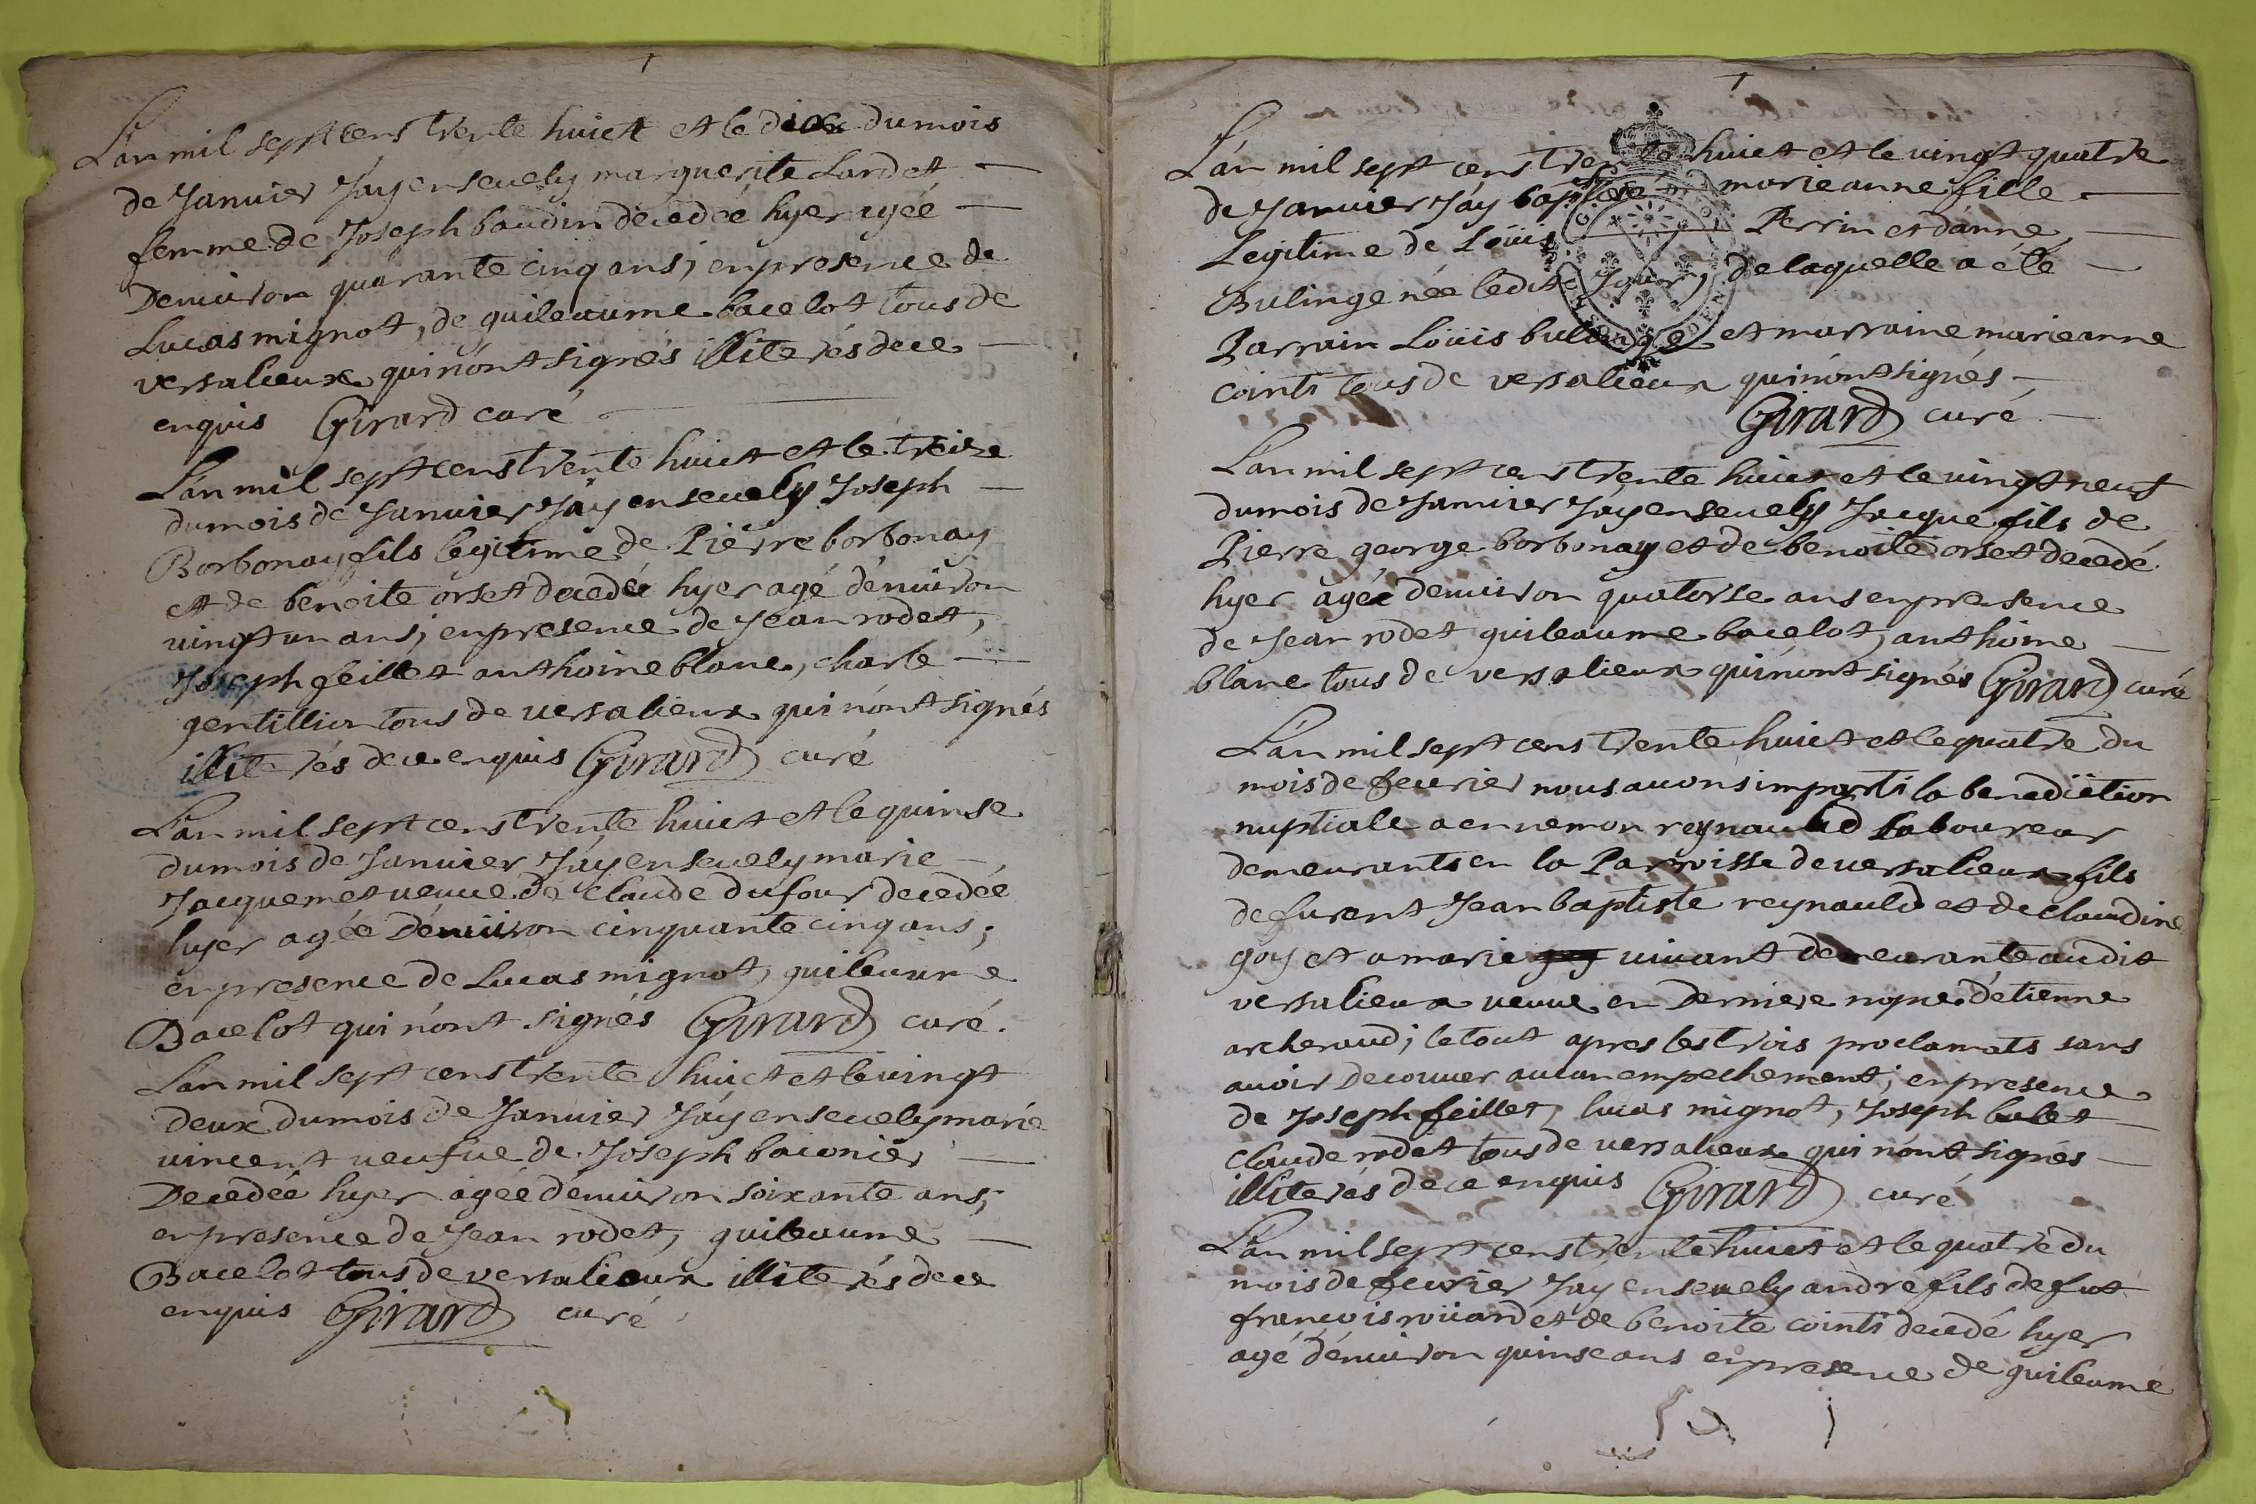 L'an mil sept cens trente huict et le dix du mois
de Janvier J'ay ensevely marguerite Lardet
femme de Joseph baudin decedée hyer agée
D'enuiron quarante cinq ans; en presence de
Lucas mignot, de guileaume bacelot tous de
versalieux qui n'ont signés illiterés de ce
enquis Girard curé
L'an mil sept cens trente huict et le treize
du mois de Janvier J'ay ensevely Joseph
Borbonay fils legitime de Pierre borbonay
et de benoite orset decedé hyer agé d'enuiron
vingt un ans; en presence de Jean rodet,
Joseph feillet anthoine blanc, charle
gentillion tous de versalieux qui n'ont signés
illiterés de ce enquis Girard curé
L'an mil sept cens trente huict et le quinse
du mois de Janvier J'ay ensevely marie
Jacquemet veuve de claude dufour decedée
hyer agée D'enuiron cinquante cinq ans;
en presence de Lucas mignot, guileaume
Bacelot qui n'ont signés Girard curé.
L'an mil sept cens trente huict et le vingt
deux du mois de Janvier J'ay ensevely marie
vincent veufue de Joseph baconier
Decedée hyer agée d'enuiron soixante ans;
en presence de Jean rodet, guileaume
Bacelot tous de versalieux illiterés de ce
enquis Girard curé
L'an mil sept cens trente huict et le vingt quatre
de Janvier J'ay baptisé marie anne fille
Legitime de Loüis Perrin et d'anne
Bulinge née ledit Jour, de laquelle a été
Parrain Loüis bulinge et marraine marie anne
cointi tous de versalieux qui n'ont signés
Girard curé
L'an mil sept cens trente huict et le vingt neuf
du mois de Janvier J'ay ensevely Jacque fils de
Pierre george borbonay et de benoite orset decedé
hyer agée d'enuiron quatorse ans en presence
de Jean rodet guileaume bacelot, anthoine
blanc tous de versalieux qui n'ont signés Girard curé
L'an mil sept cens trente huict et le quatre du
mois de feurier nous auons imparti la benediction
nuptiale a ennemon reynauld laboureur
demeurants en la Parroisse de versalieux fils
de furent Jean baptiste reynauld et de claudine
goy et a marie vivant demeurante audit
versalieux veuve en Derniere nopce d'etienne
archeraud; le tout apres les trois proclamats sans
auoir Decouver aucun empechement; en presence
de Joseph feillet, lucas mignot, Joseph bulet
claude rodet tous de versalieux qui n'ont signés
illiterés de ce enquis Girard curé
L'an mil sept cens trente huict et le quatre du
mois de feurier J'ay ensevely andre fils de fut
françois roüard et de benoite cointi decedé hyer
agé d'enuiron quinse ans en presence de guileaume